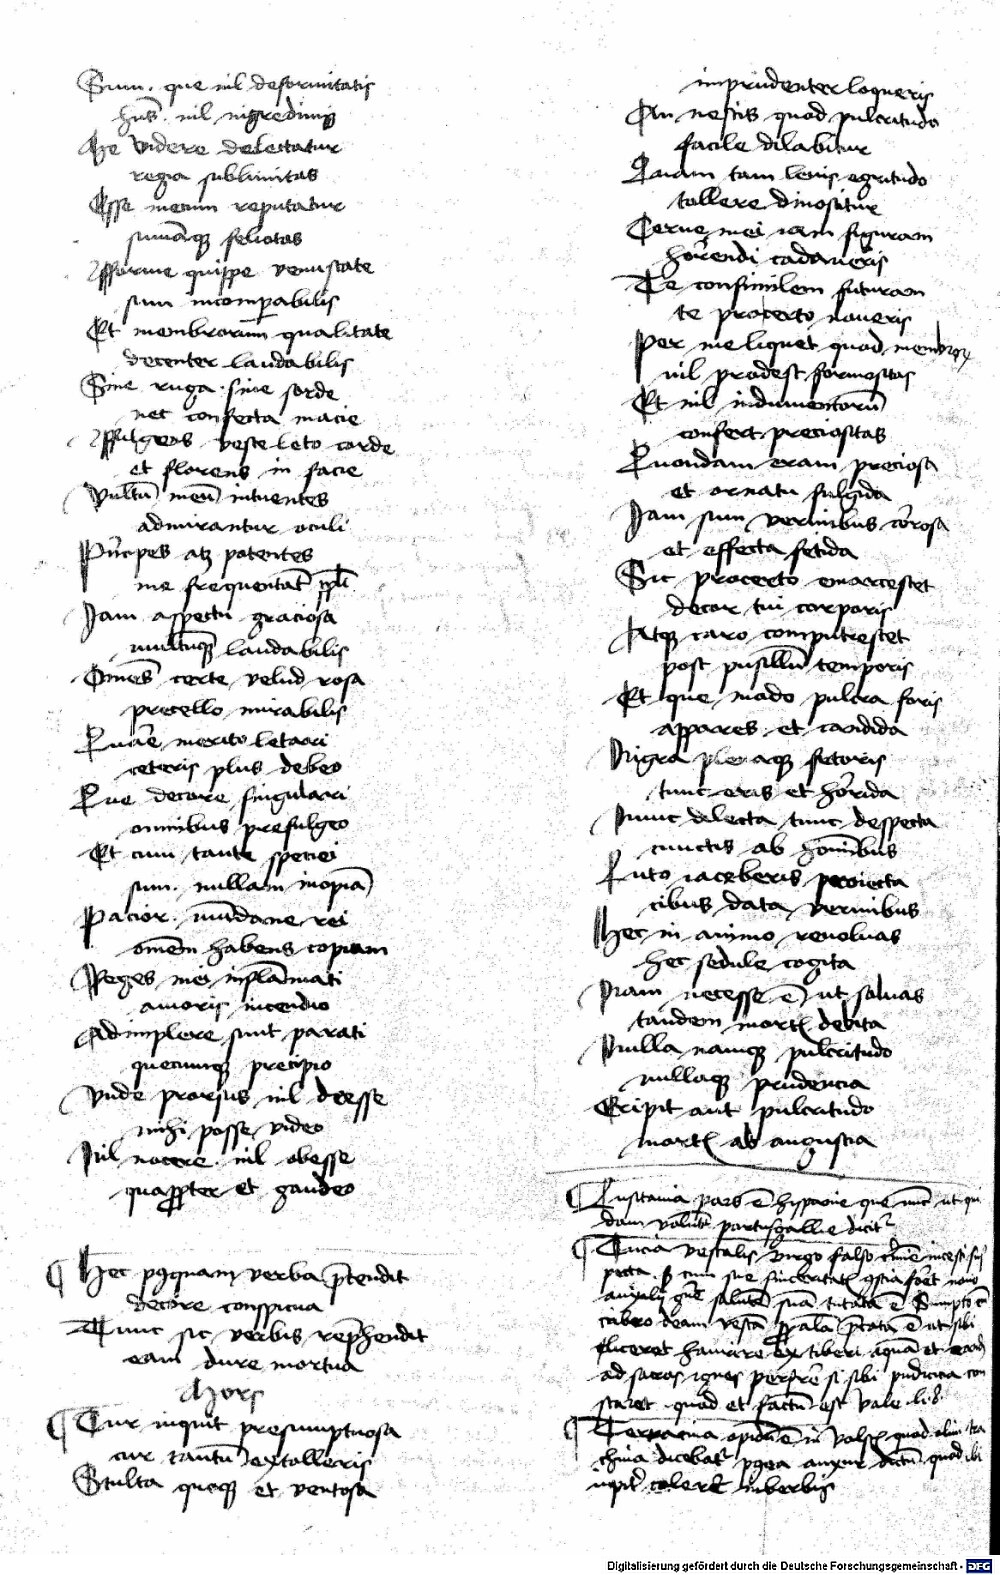 Sum. que nil deformitatis
hns̄. nil nigredinis
Me videre delectatur
regia sublimitas
Esse mecum reputatur
sum̄aq felicitas
Afforme quippe venustate
sum incomparabilis
Et membrorum qualitate
decenter laudabilis
Sine ruga. sine sorde
nec confecta macie
Affulgens veste leto corde
et florens in facie
Vultū meū intuentes
admirantur oculi
Prīcpes atz potentes
me frequentāt ppl̄i
Iam aspectu graciosa
multūq laudabilis
Om̄es certe velud rosa
precello mirabilis
Quare merito letari
ceteris plus debeo
Que decore singulari
omnibus prefulgeo
Et cum tante speciei
sum. nullam inopiā
Pacior. mūdane rei
om̄em habens copiam
Reges mei inflāmati
amoris incendio
Adimplere sunt parati
quecunq precipio
Unde prorsus nil deesse
mihi posse video
Nil nocere. nil obesse
quapp̄ter et gaudeo
¶ Hec p9quam verba p̄tendit
decore conspicua
Tunc sic verbis rep̄hendit
eam dure mortua
Mors
¶ Cur inquit presumptuosa
cur tantū extolleris
Stulta quoq et ventosa
imprudenter loqueris
An nescis quod pulcritudo
facile dilabitur
Quam tam levis egritudo
tollere dinoscitur
Cerne mei iam figuram
hor̄rendi cadaveris
Te consimilem futuram
te procerto noveris
Per me liquet quod membroꝝ
nil prodest formositas
Et nil indumentorū
confert preciositas
Quondam eram preciosa
et ornatu fulgida
Iam sum vermibus cōrosa
et effecta fetida
Sic procerto emarcescet
decor tui corporis
Atq caro computrescet
post pusillū temporis
Et que modo pulcra foris
appares. et candida
Nigra plenaq fetoris
tunc eris et hōrida
Nunc dilecta tunc despecta
cunctis ab hoīnibus
Luto iaceberis proiecta
cibus data vermibus
Hec in animo revolvas
hec sedule cogita
Nam necesse ē ut solvas
tandem mortꝭ debita
Nulla namq pulcritudo
nullaq prudencia
Eripit aut pulcritudo
mortꝭ ab angustia
¶ Lusitania pars ē hyspanie que nūc ut qui
dam volūt portugallie dicit᷑
¶ Tucia vestalis virgo falso crīmīe incesti sus
pecta
cribro deam vestā ē ut sibi
liceret haurire ex tiberi aquā et
ad sacros ignes perferre si sibi pudicicia con
staret. quod et factū est Vale. li. 8.
¶ Terracina opidū ē in volscꝭ quod olim tra
china dicebat᷑ p9ea anxur dictū quod ibi
iupit᷑ coleret᷑ inberbis
Digitalisierung gefördert durch die Deutsche Forschungsgemeinschaft - DFG